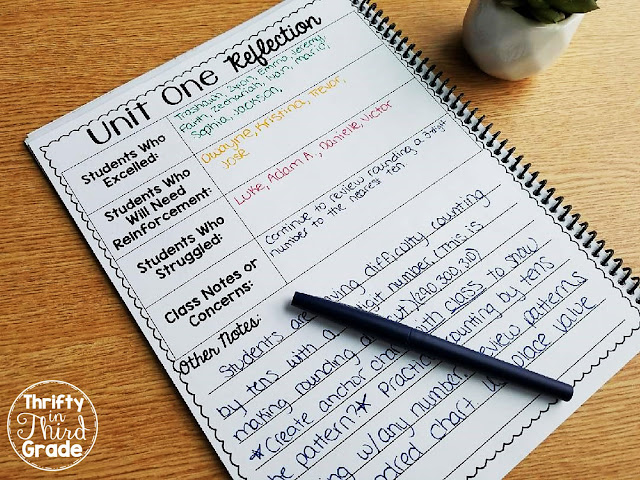 Unit One Reflection
Students Who
Excelled:
Emma, Jeremy,
Faith, Zechariah, Ivan, Mario,
Sophia, Jackson,
Students Who
Will Need
Reinforcement:
Dwayne, Kristina, Trevor,
Jose
Students Who
Struggled:
Luke, Adam A., Danielle, Victor
Class Notes or
Concerns:
continue to review rounding a 3-digit
number to the nearest ten.
Other Notes:
Students are difficulty counting
by tens with a digit number (This is
making rounding (290, 300, 310)
*Create anchor with class to show
the pattern?* counting by tens
w/any number. review patterns
chart place value
Thrifty
in
Third
Grade